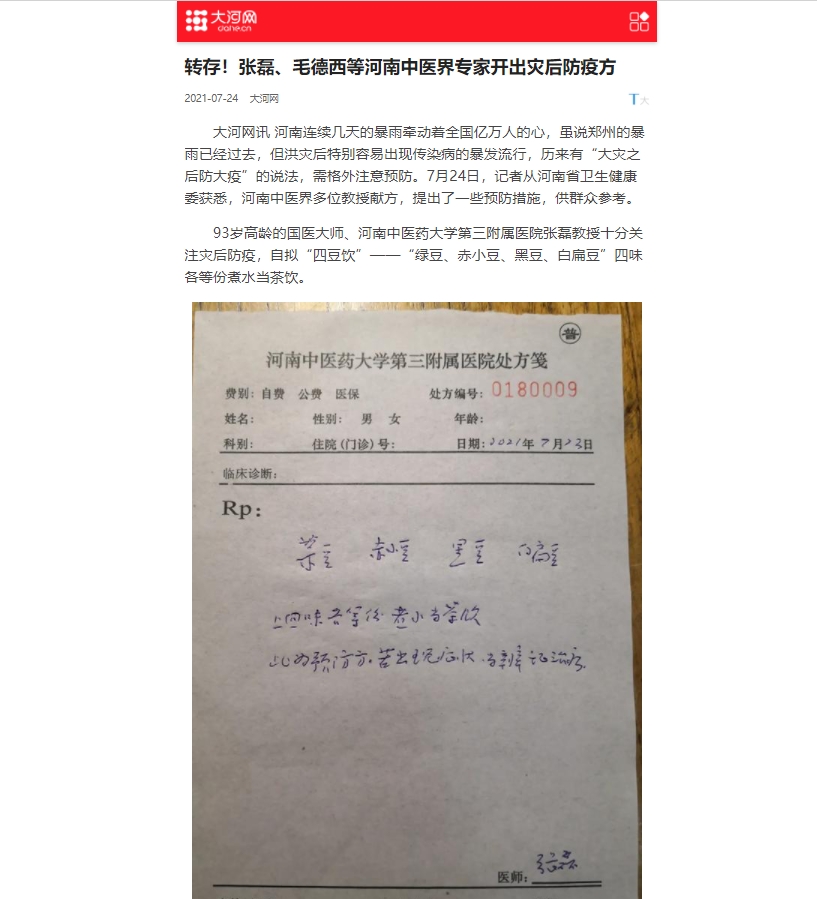 大河网
dahe.cn
转存！张磊、毛德西等河南中医界专家开出灾后防疫方
2021-07-24 大河网
T大
大河网讯 河南连续几天的暴雨牵动着全国亿万人的心，虽说郑州的暴
雨已经过去，但洪灾后特别容易出现传染病的暴发流行，历来有“大灾之
后防大疫”的说法，需格外注意预防。7月24日，记者从河南省卫生健康
委获悉，河南中医界多位教授献方，提出了一些预防措施，供群众参考。
93岁高龄的国医大师、河南中医药大学第三附属医院张磊教授十分关
注灾后防疫，自拟“四豆饮”——“绿豆、赤小豆、黑豆、白扁豆”四味
各等份煮水当茶饮。
普
河南中医药大学第三附属医院处方笺
费别：自费 公费 医保 处方编号：0180009
姓名： 性别： 男 女 年龄：
科别： 住院（门诊）号： 日期：2021年7月23日
临床诊断：
Rp：
菉豆 赤小豆 黑豆 白扁豆
上四味各等份 煮水当茶饮
此为预防方，若出现症状，当辨证治疗。
医师：张磊